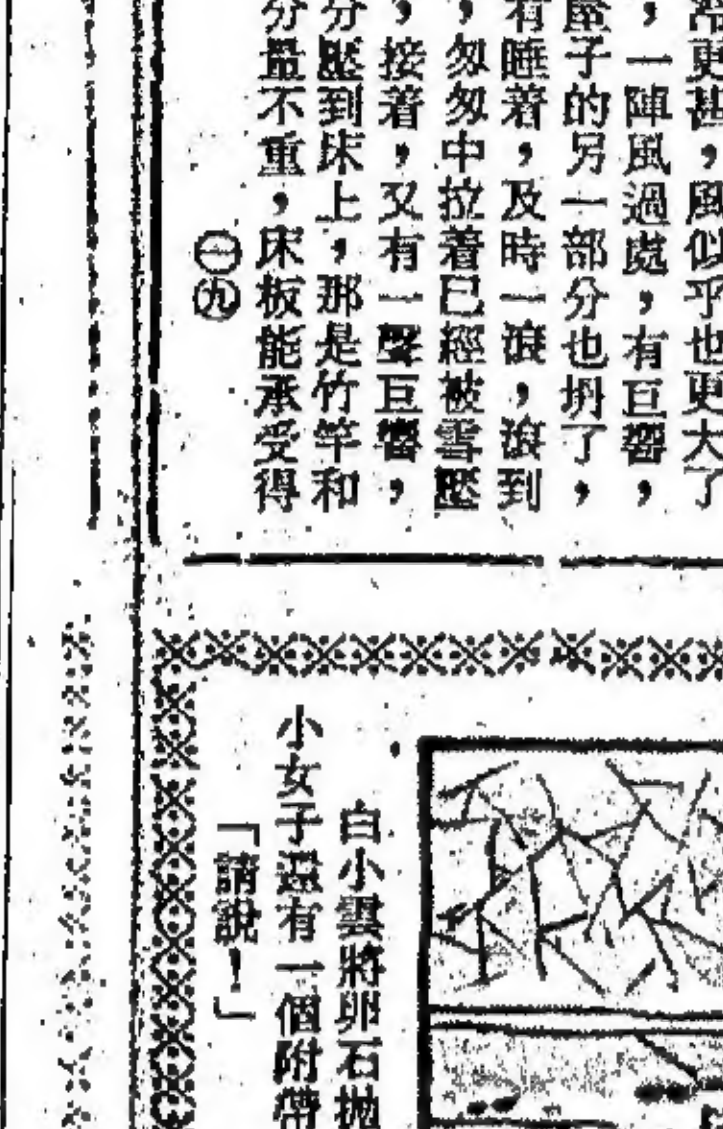 冷更甚，風似乎也更大了
，一陣風過處，有巨響，
屋子的另一部分也坍了，
有睡着，及時一滾，滾到
，匆匆中拉着已經被雪壓
，接着，又有一聲巨響，
分壓到床上，那是竹竿和
分量不重，床板能承受得
㊀㊈
白小雲將卵石拋
小女子還有一個附帶
「請說！」